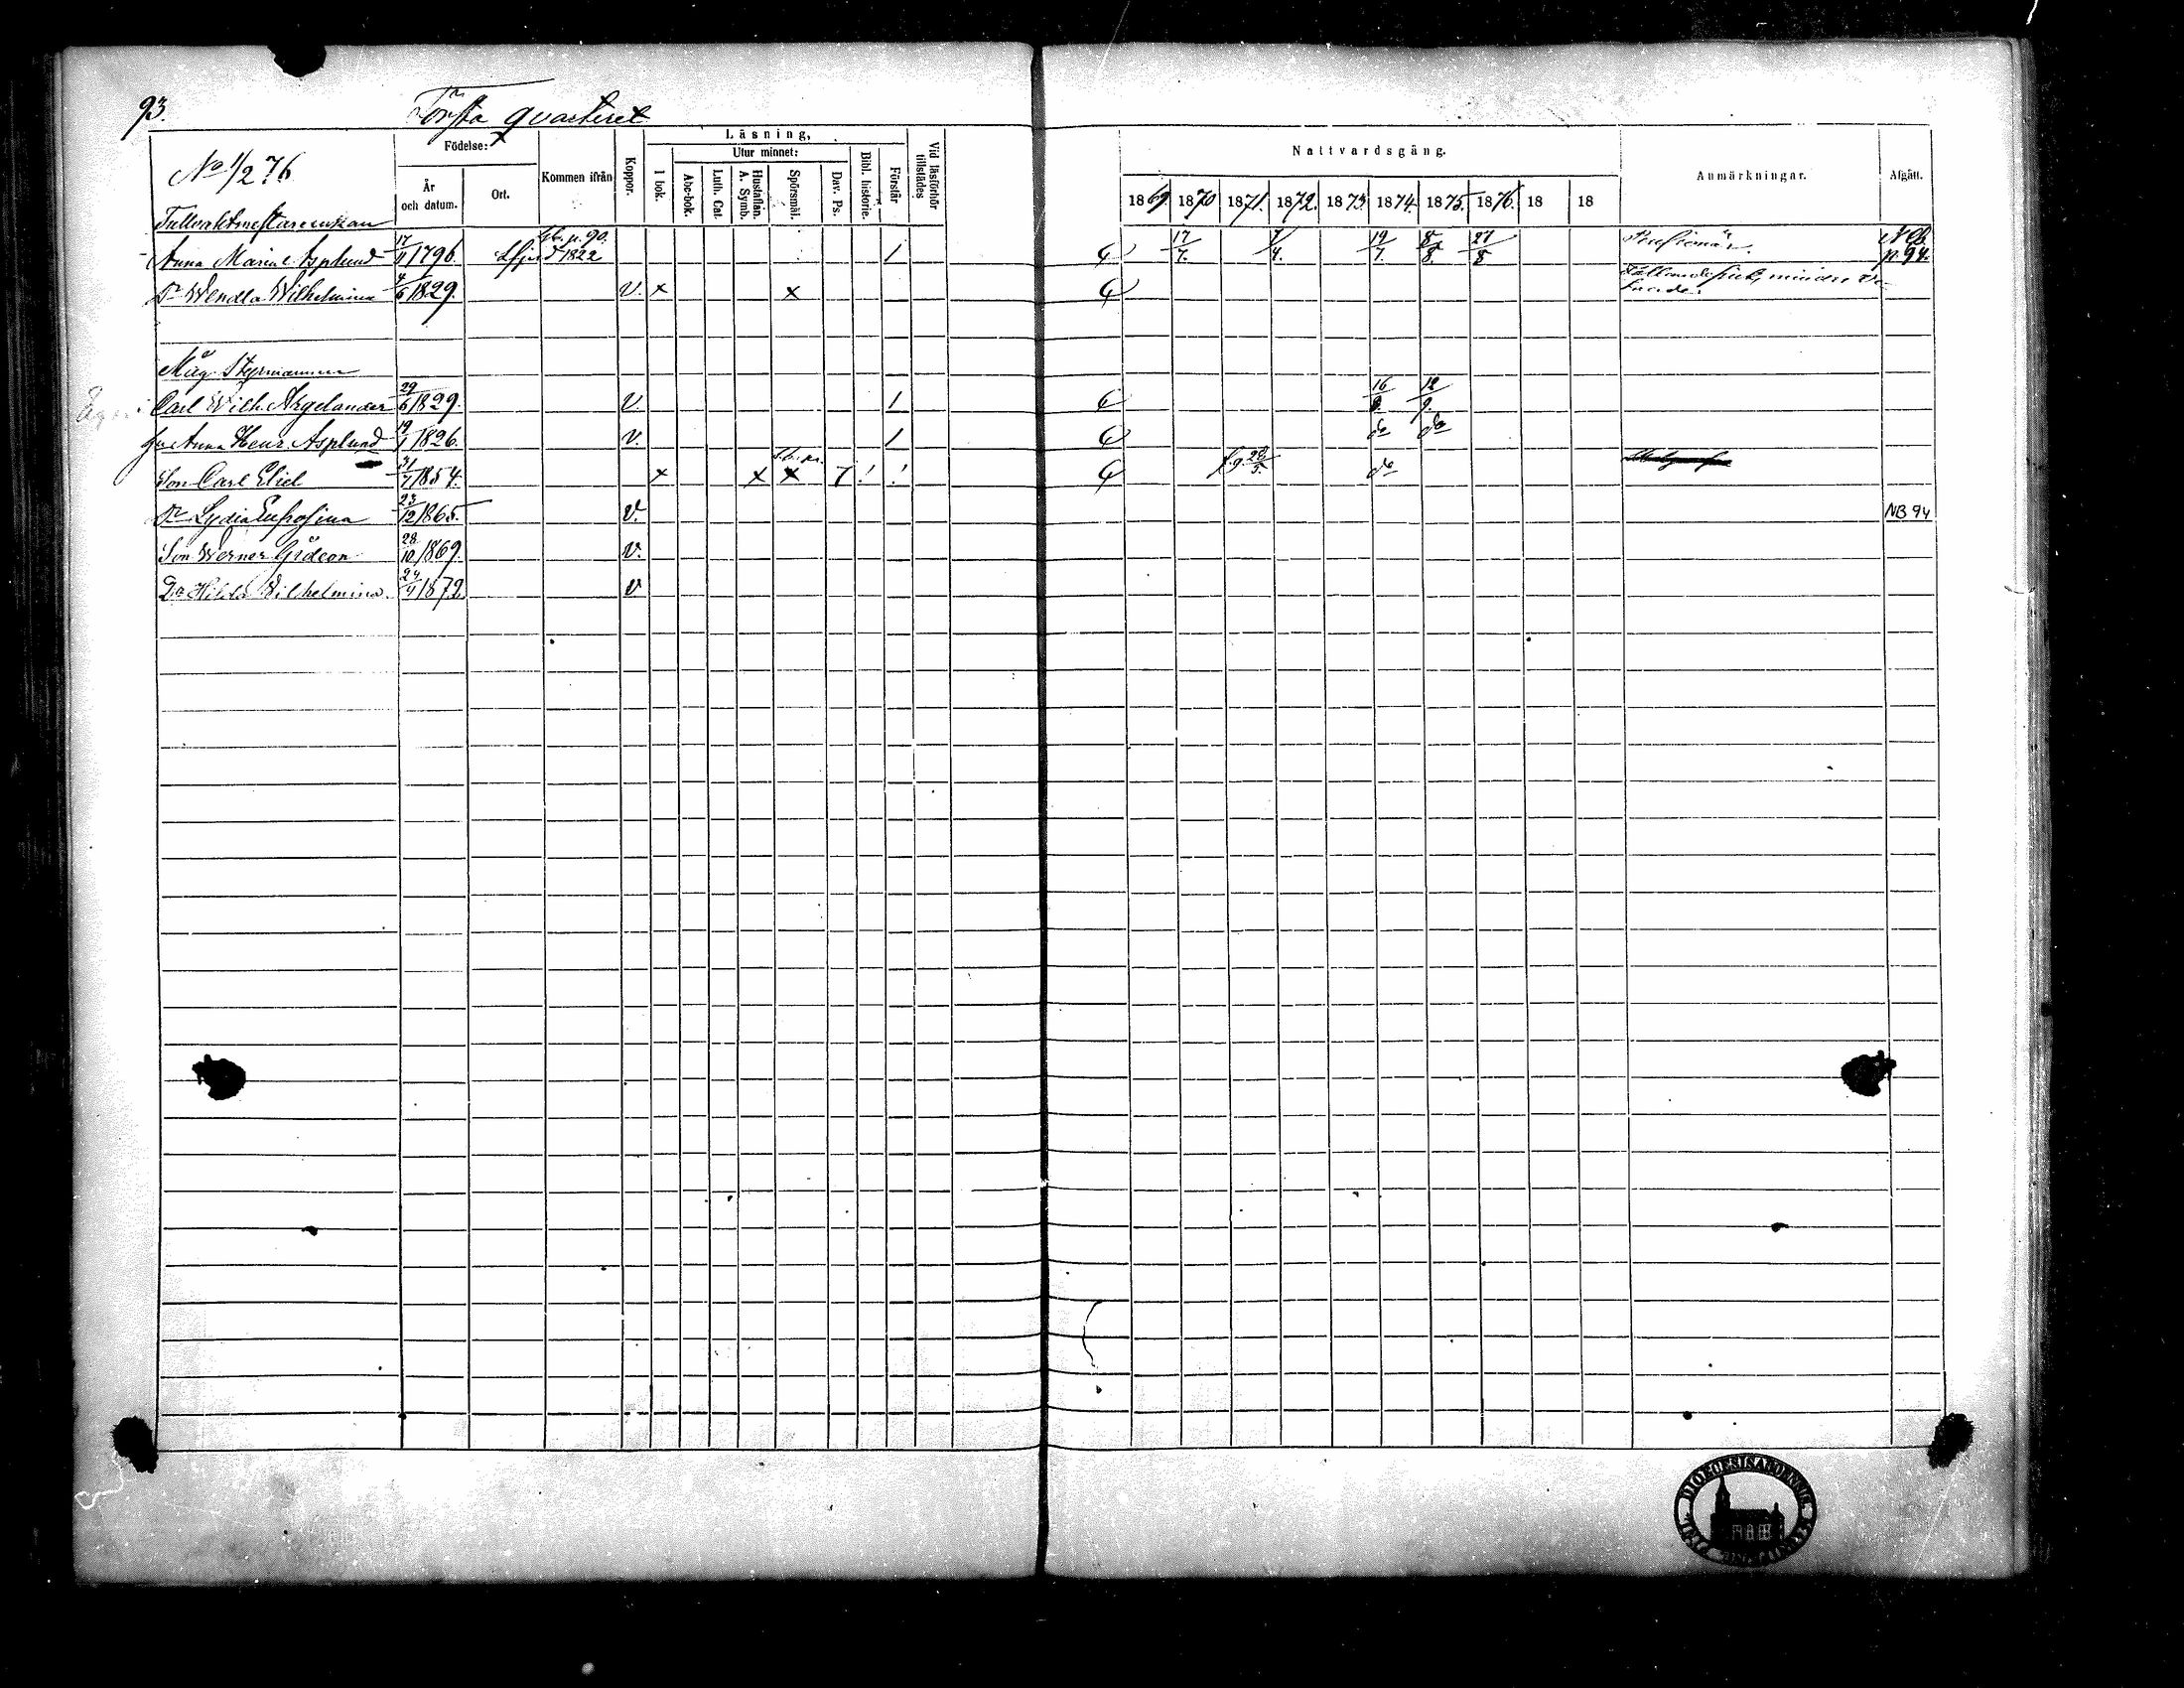 93.
Första quarteret
No 1/2 76
Födelse:
År och datum.
Ort.
Kommen ifrån
Koppor.
Läsning,
1 bok.
Utur minnet:
Abc-bok.
Luth. Cat.
Hustaflan. A. Symb.
Spörsmål.
Dav. Ps.
Bibl. historie.
Förstår
Vid läsförhör tillstädes
Nattvardsgång.
1869. 1870 1871. 1872. 1873. 1874. 1875. 1876. 18 18
Anmärkningar.
Afgått.
Tullvaktmestareenkan
Anna Maria Asplund 17/11 1796. p. 90. 1822 1 17/7. 7/4. 19/7. 8/8. 27/8 Pensionär. NB. p. 94.
Dr Wendla Wilhelmina 4/6 1829. V. x x mindre
Måg Styrmannen
Carl Wilh. Argelander 29/6 1829. V. 1 12/9.
Anna Henr. Asplund 19/1 1826. V. 1 do do
Son Carl Eliel 31/7 1854. x x x 7 ! ! do
Dr Lydia Eufrosina 23/12 1865. V. NB 94
Son Werner Gideon 28/10 1869. V.
Dr Hilda Wilhelmina. 24/4 1872. V